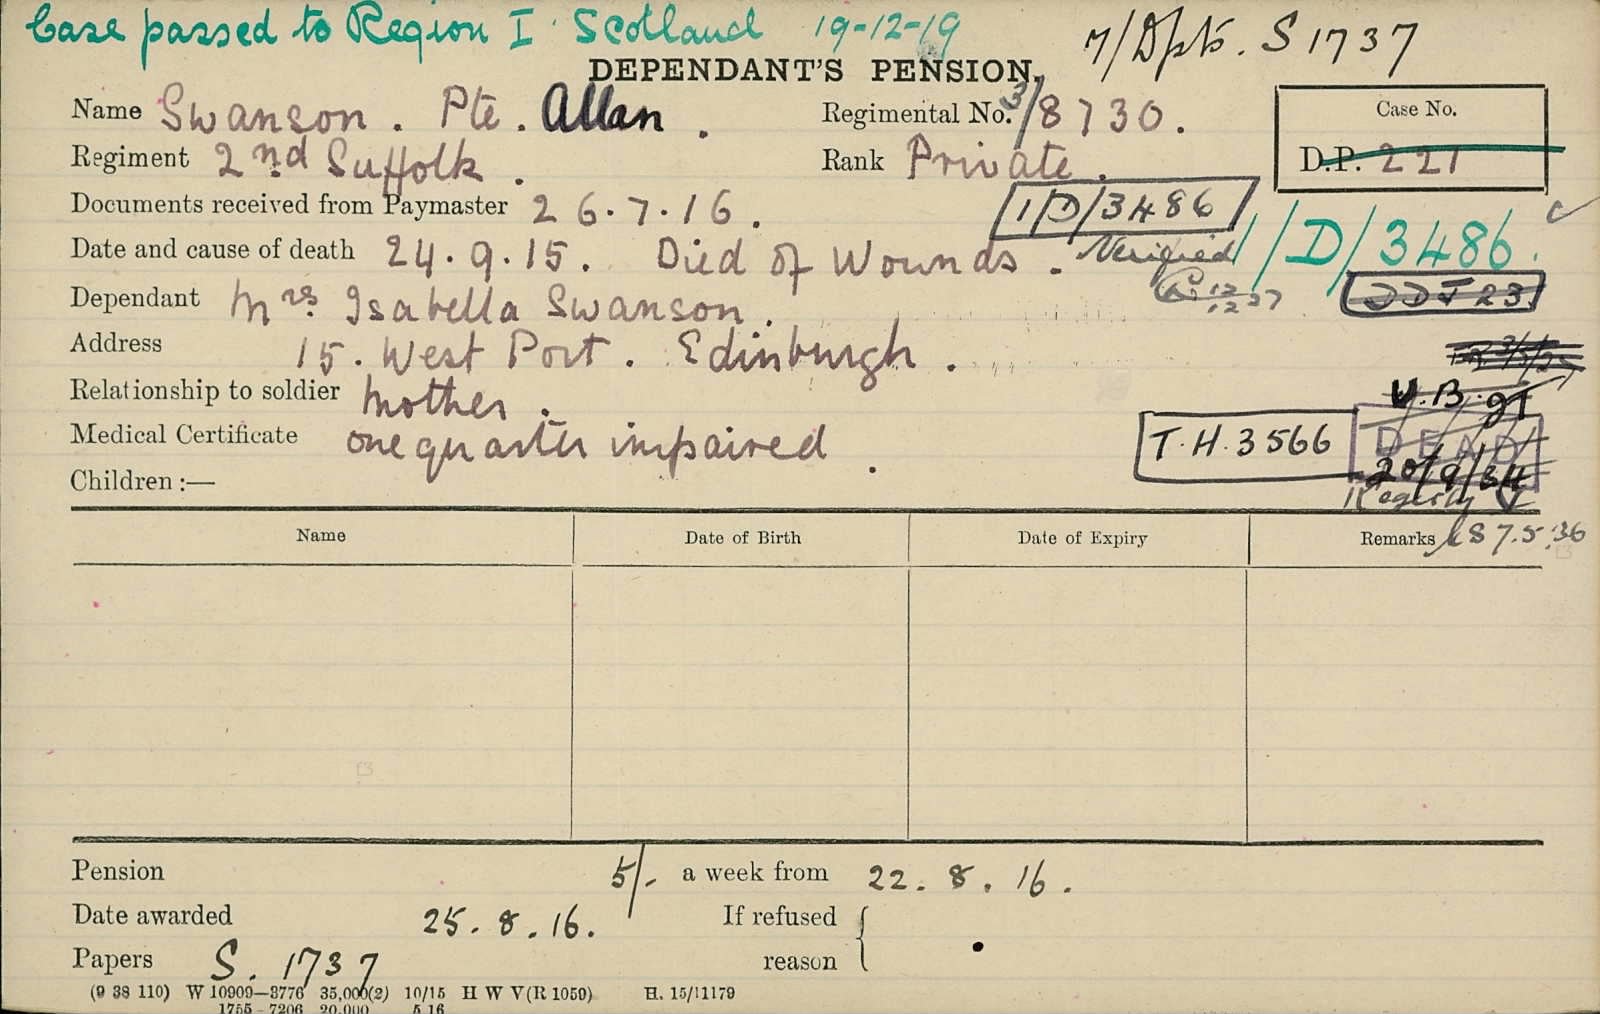 Case passed to Region I Scotland 19-12-19
7/Dpts. S 1737
DEPENDANT'S PENSION.
Name Swanson. Pte. Allan.
Regimental No. 3/8730.
Case No.
D.P. 221
Regiment 2nd Suffolk.
Rank Private.
Documents received from Paymaster 26.7.16.
1/D/3486
Date and cause of death 24.9.15. Died of Wounds. Verified
1/D/3486.
Dependant Mrs Isabella Swanson.
Address 15. West Port. Edinburgh.
Relationship to soldier Mother.
Medical Certificate one quarter impaired.
T.H.3566
DEAD
20/9/34
Children :—
Name Date of Birth Date of Expiry Remarks
7.5.36
Pension 5/- a week from 22.8.16.
Date awarded 25.8.16. If refused
Papers S. 1737 reason
(9 38 110) W 10909—3776 35,000(2) 10/15 H W V(R 1059) H. 15/11179
1755—7206 20,000 5 16